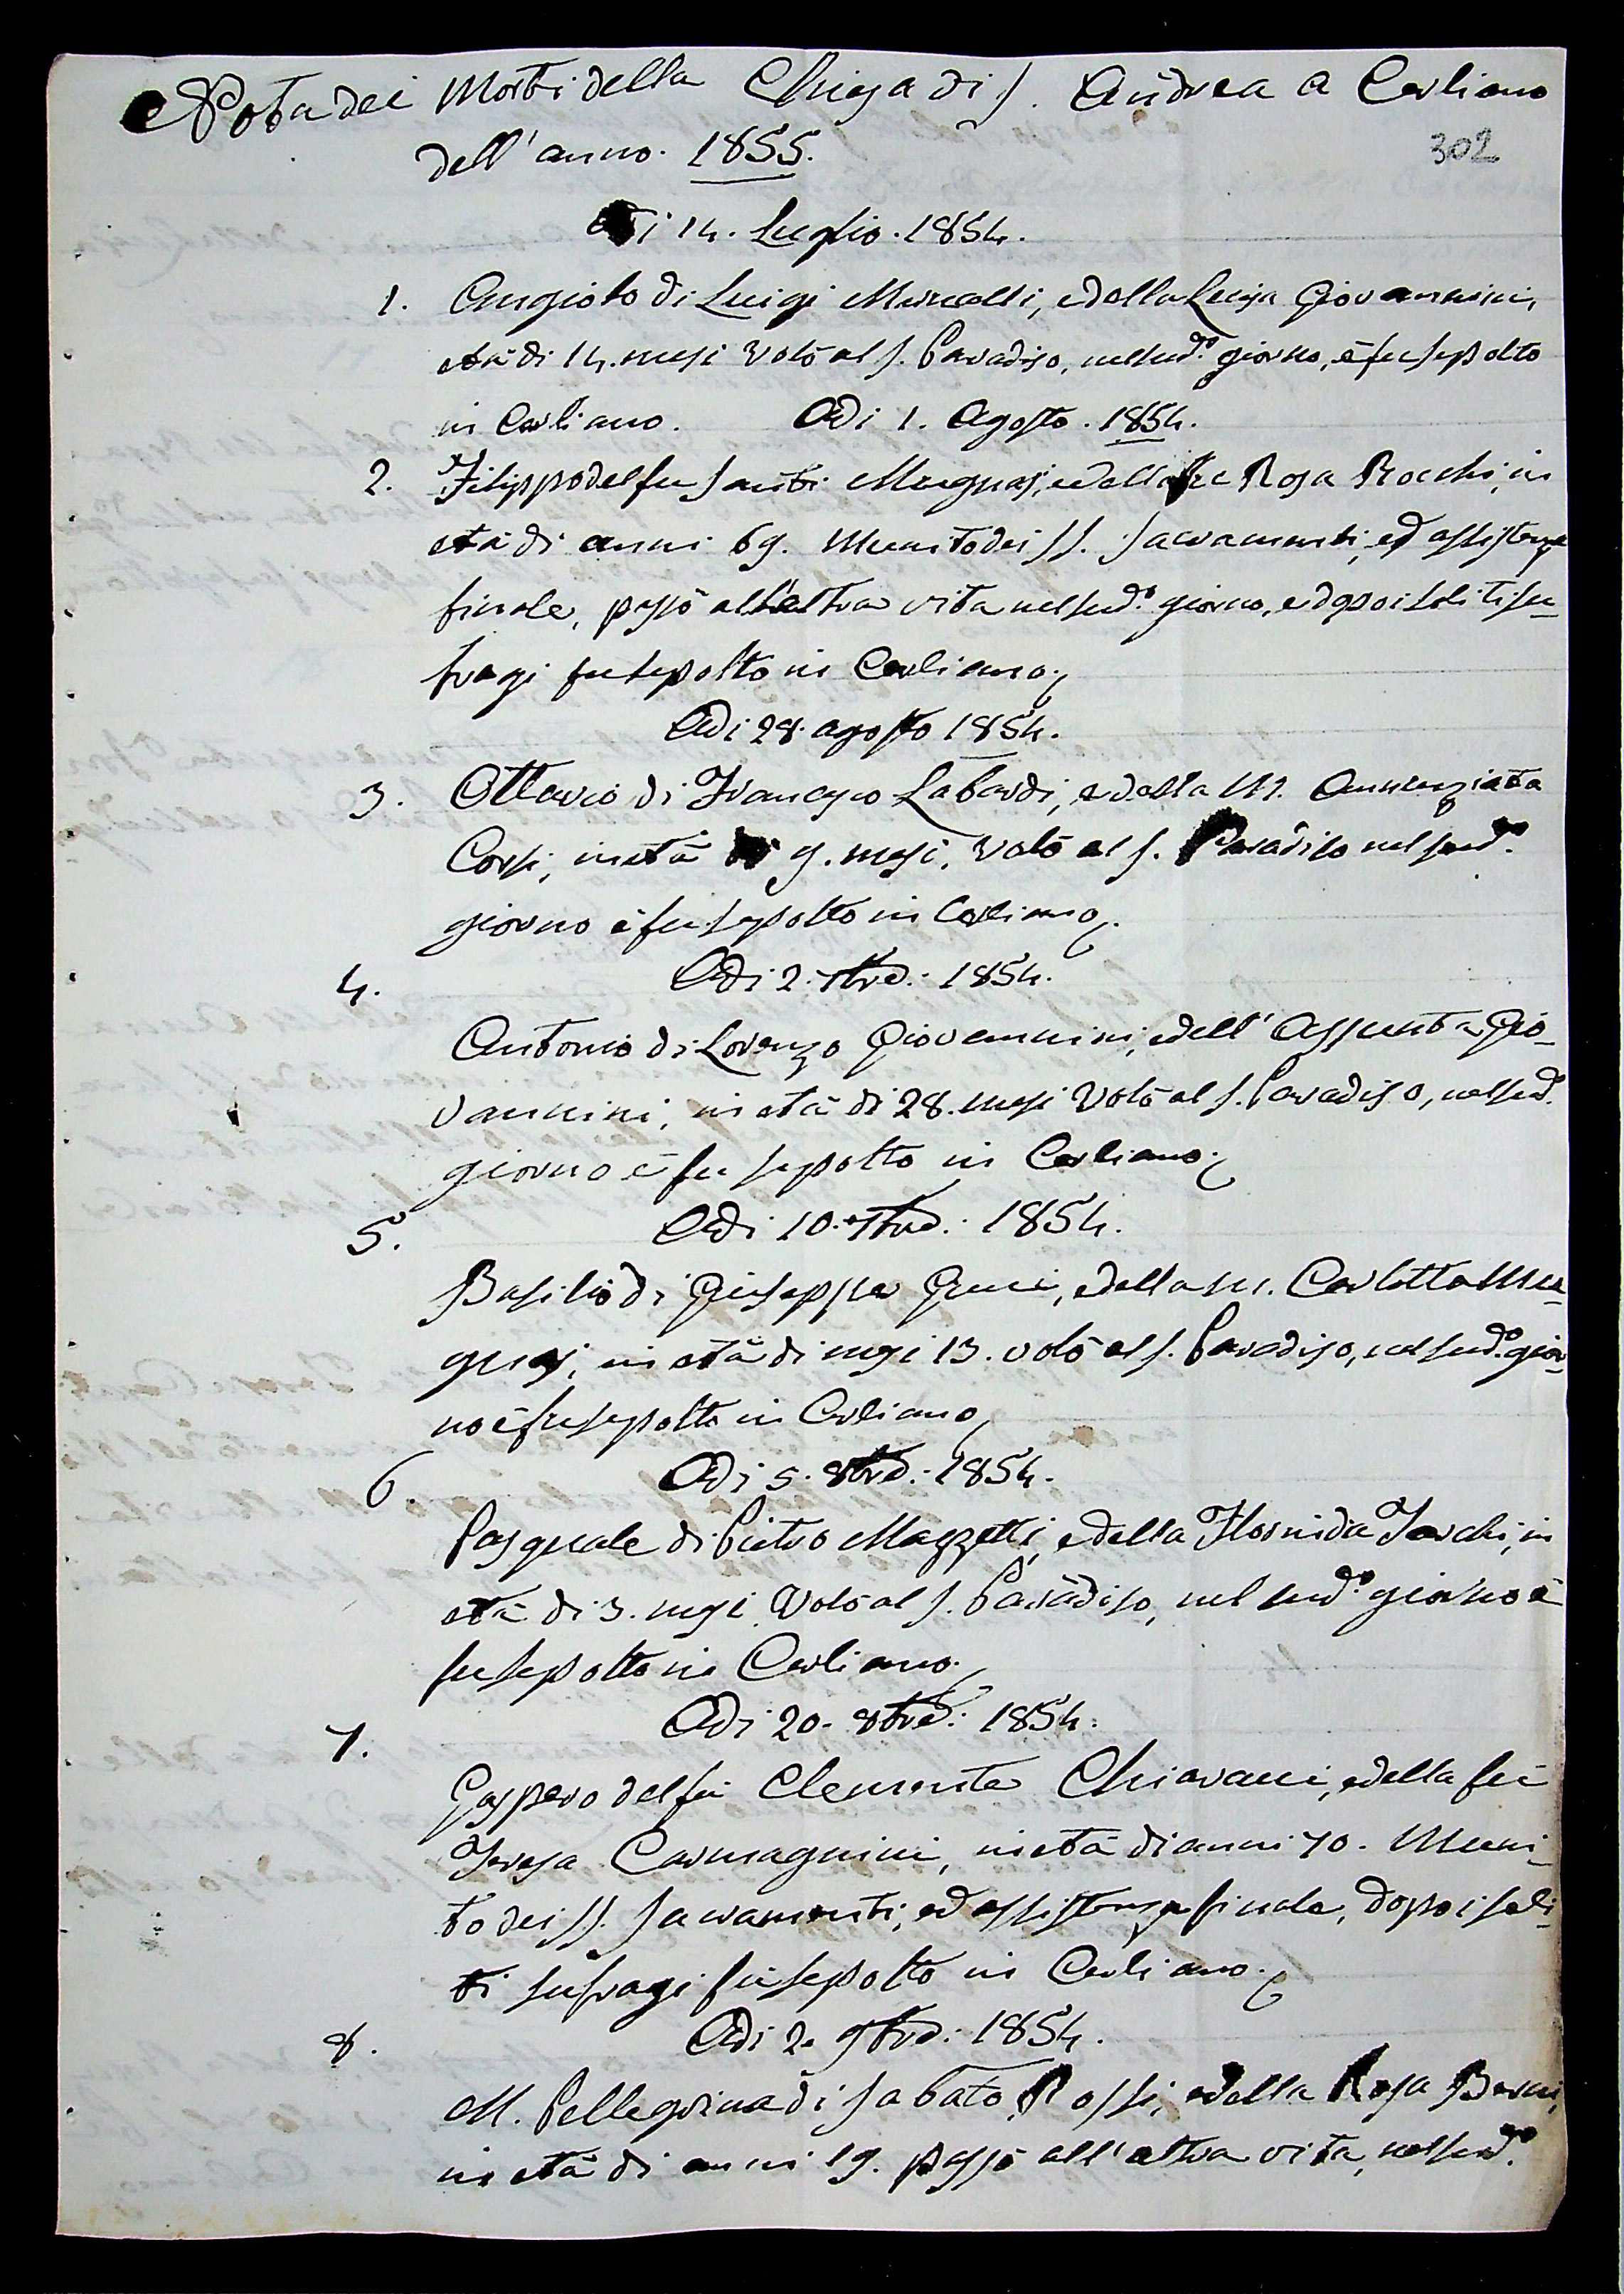 Nota dei Morti della Chiesa di S. Andrea a Cerliano
dell'anno. 1855.
302
Adi 14. Luglio. 1854.
1. Angiolo di Luigi Marcelli, e della Luisa Giovannini,
età di 14. mesi volò al S. Paradiso, nel sud.º giorno, e fu sepolto
in Cerliano. Adi 1. Agosto. 1854.
2. Filippo del fu Santi Mugnaj, e della fu Rosa Rocchi, in
età di anni 69. Munito dei SS. Sacramenti, ed assistenza
finale, passò all'altra vita nel sud.º giorno, e dopo i soliti su-
fragi fu sepolto in Cerliano.
Adi 28. agosto 1854.
3. Ottavio di Francesco Labardi, e della M. Annunziata
Corsi, in età di 9. mesi, volò al S. Paradiso nel sud.º
giorno e fu sepolto in Cerliano.
4. Adi 2. 7bre: 1854.
Antonio di Lorenzo Giovannini, e dell'Assunta Gio-
vannini, in età di 28. mesi volò al S. Paradiso, nel sud.º
giorno e fu sepolto in Cerliano.
5. Adi 10. 7bre: 1854.
Basilio di Giuseppe e della M. Carlotta Mu-
gnaj, in età di mesi 13. volò al S. Paradiso, nel sud.º gior-
no e fu sepolto in Cerliano
6. Adi 5. 8bre: 1854.
Pasquale di Pietro Mazzetti, e della Florinda Tarchi, in
età di 3. mesi volò al S. Paradiso, nel sud.º giorno e
fu sepolto in Cerliano.
7. Adi 20. 8bre: 1854.
Gaspero del fu Clemente Chiaracci, e della fu
Teresa Carmagnini, in età di anni 70. Muni-
to dei SS. Sacramenti, ed assistenza finale, dopo i soli-
ti sufragi fu sepolto in Cerliano.
8. Adi 2. 9bre: 1854.
M. Pellegrina di Sabato Rossi, e della Rosa Berni,
in età di anni 19. passò all'altra vita, nel sud.º